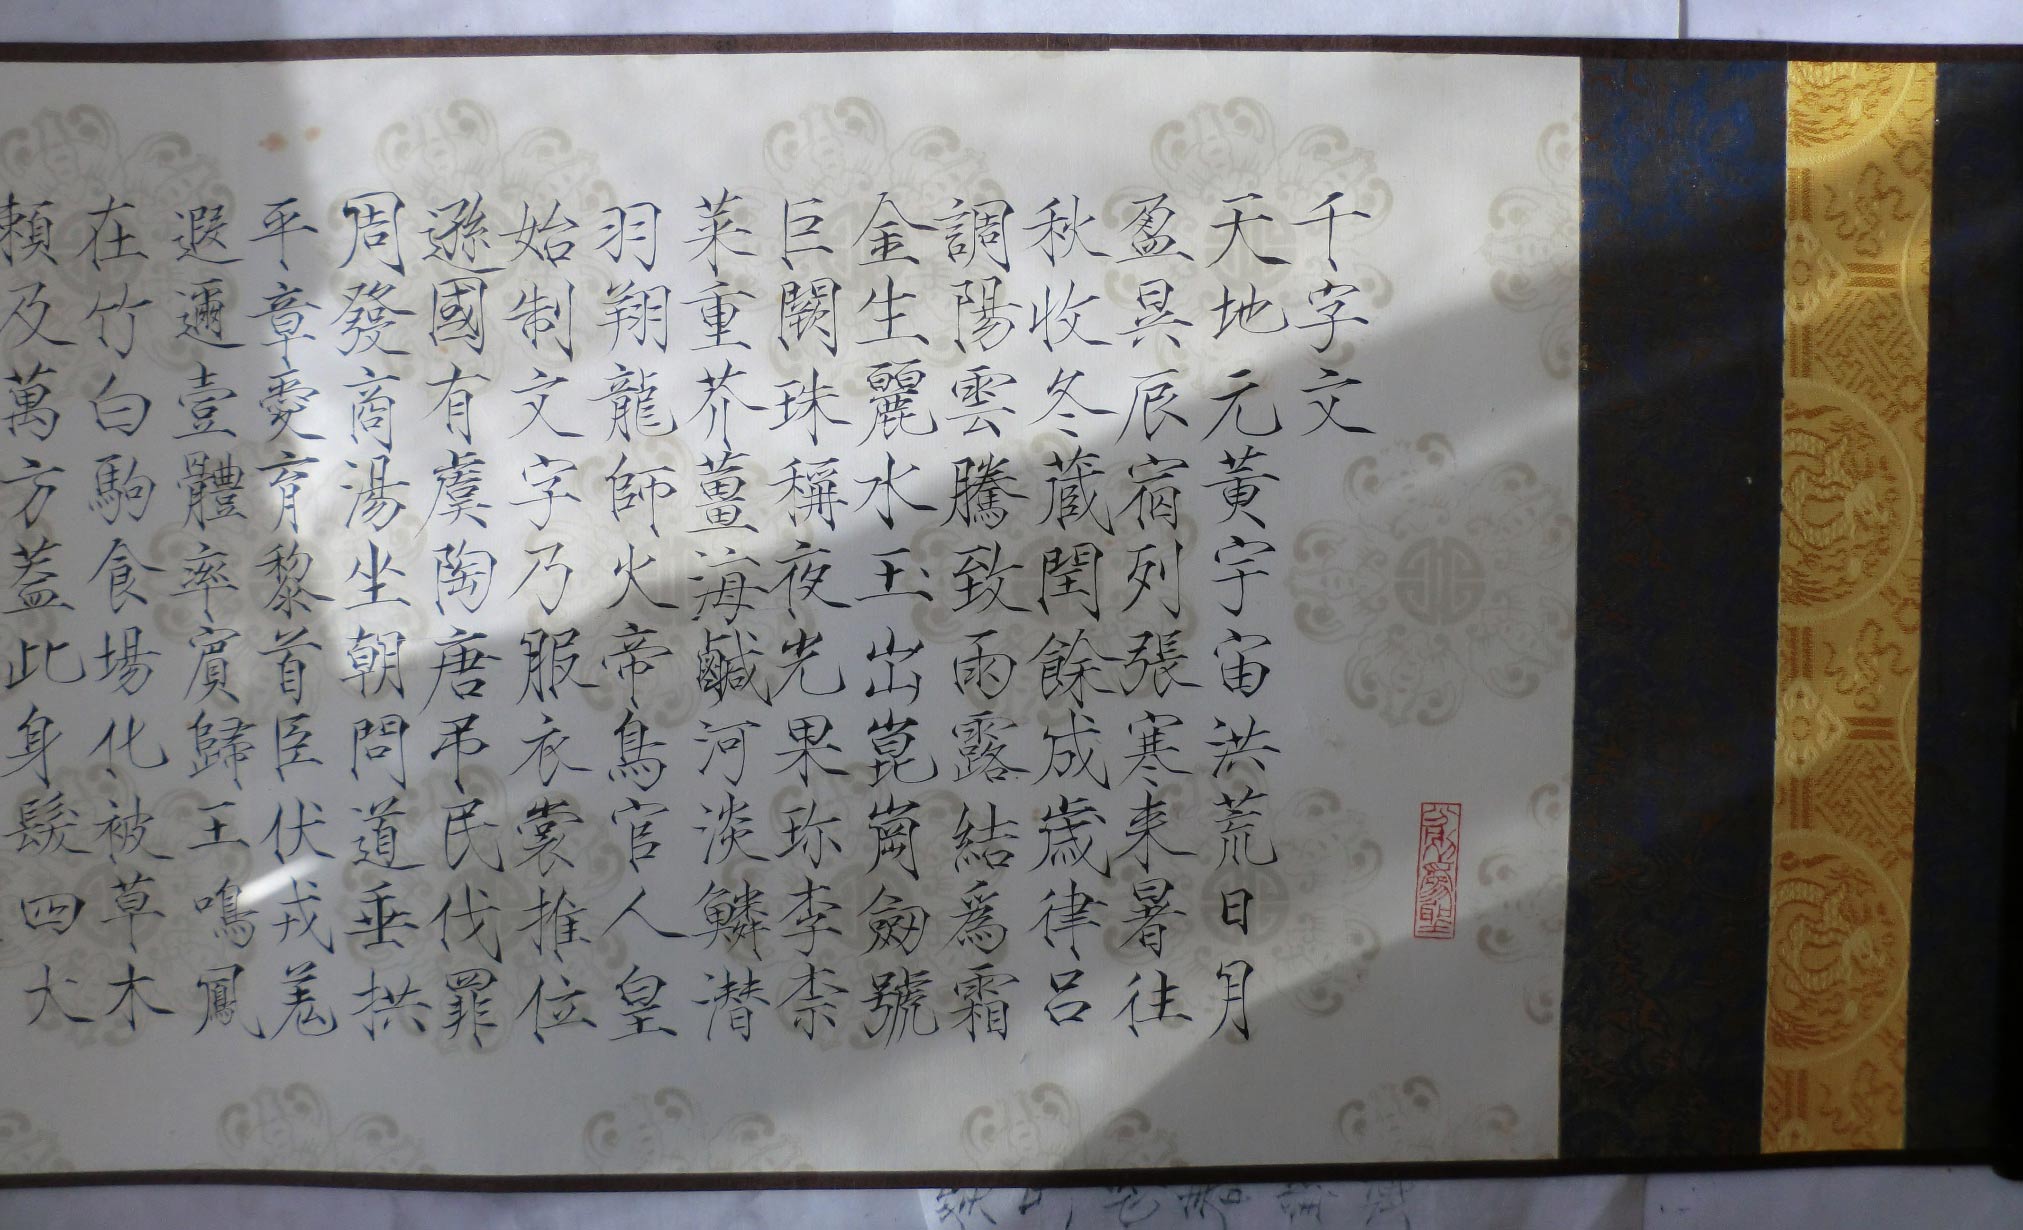 千字文
天地元黃宇宙洪荒日月
盈昃辰宿列張寒来暑往
秋收冬蔵閏餘成歲律呂
調陽雲騰致雨露結爲霜
金生麗水玉出崑崗劒號
巨闕珠稱夜光果珎李柰
菜重芥薑海鹹河淡鱗潜
羽翔龍師火帝鳥官人皇
始制文字乃服衣裳推位
遜國有虞陶唐吊民伐罪
周發商湯坐朝問道垂拱
平章愛育黎首臣伏戎羌
遐邇壹體率賓歸王鳴鳳
在竹白駒食場化被草木
賴及萬方蓋此身髮四大